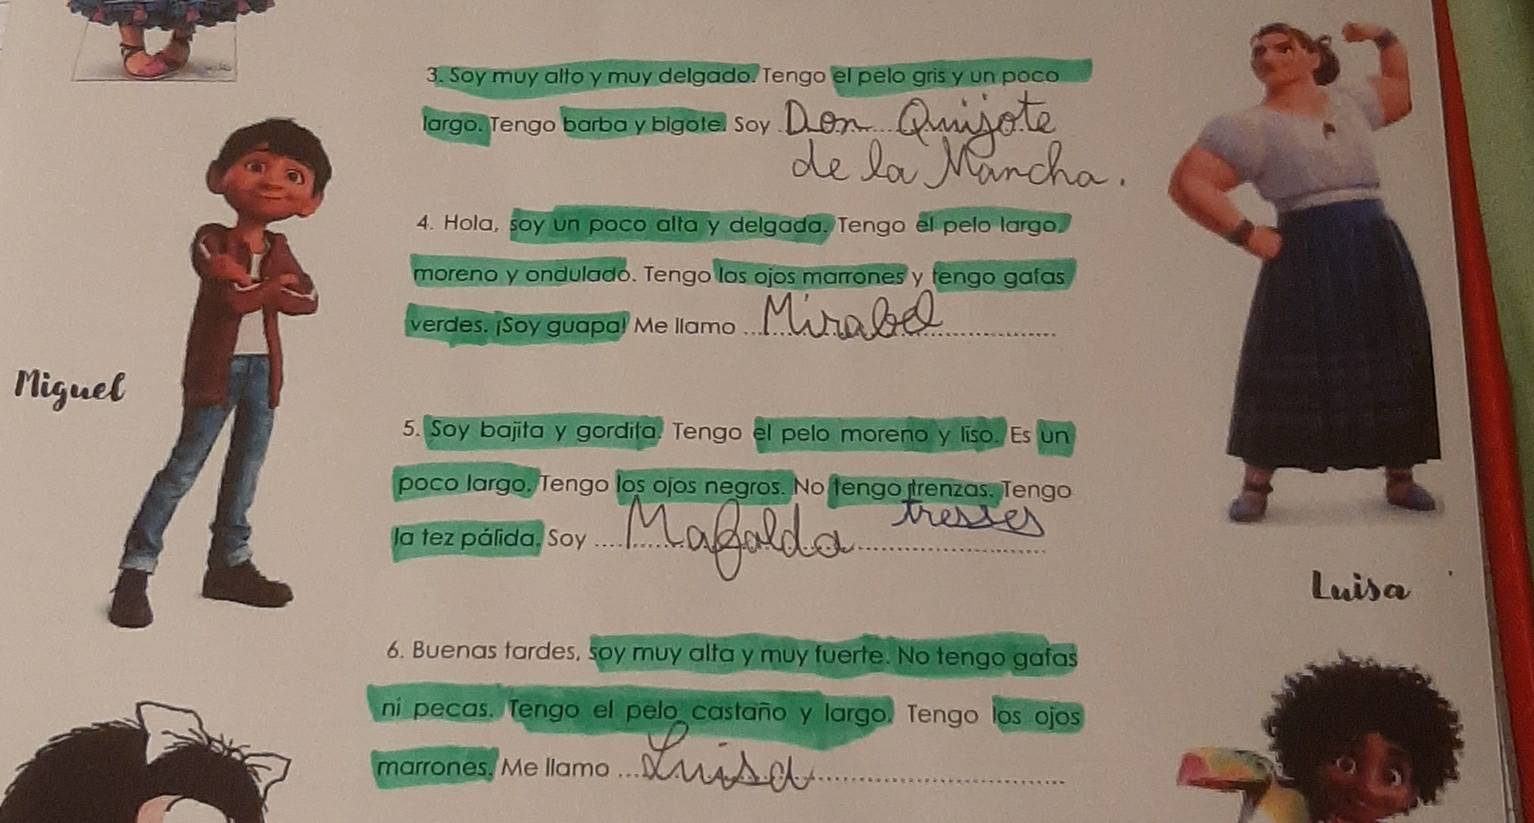 3. Soy muy alto y muy delgado. Tengo el pelo gris y un poco
largo. Tengo barba y bigote. Soy Don Quijote
de la Mancha.
4. Hola, soy un poco alta y delgada. Tengo el pelo largo,
moreno y ondulado. Tengo los ojos marrones y tengo gafas
verdes. ¡Soy guapa! Me llamo Mirabel
Miguel
5. Soy bajita y gordita. Tengo el pelo moreno y liso. Es un
poco largo. Tengo los ojos negros. No tengo trenzas. Tengo
tresses
la tez pálida. Soy Mafalda
Luisa
6. Buenas tardes, soy muy alta y muy fuerte. No tengo gafas
ni pecas. Tengo el pelo castaño y largo. Tengo los ojos
marrones. Me llamo Luisa